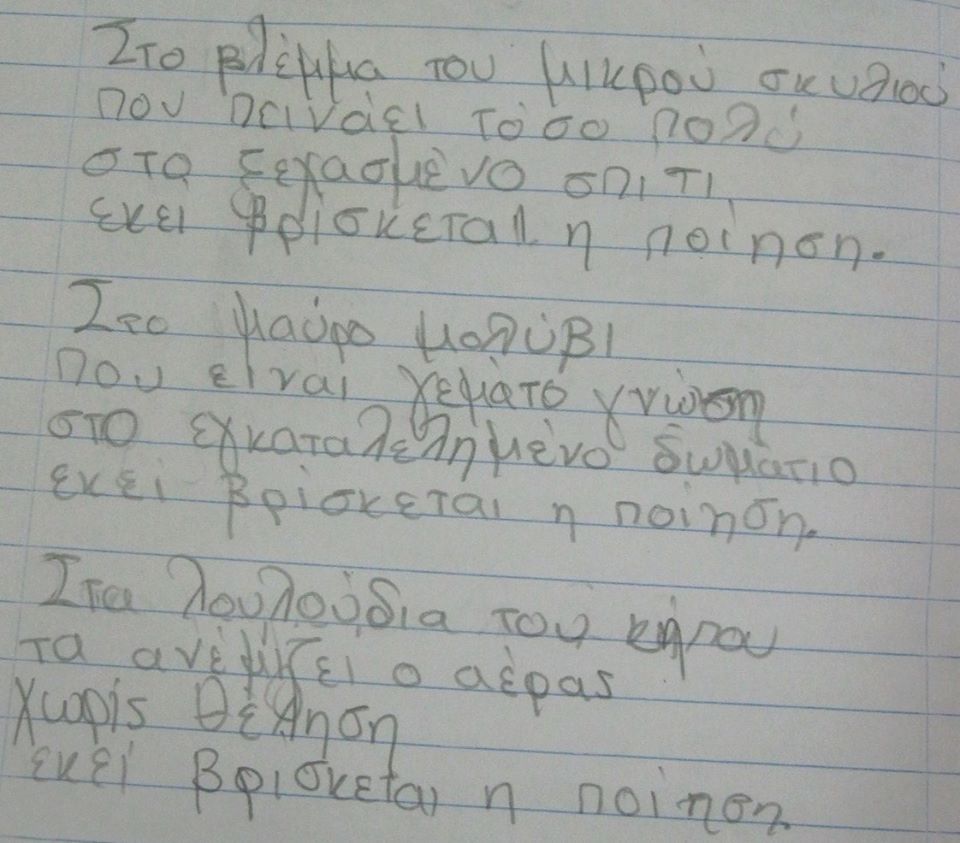 Στο βλέμμα του μικρού σκυλιού
που πεινάει τόσο πολύ
στο ξεχασμένο σπίτι
εκεί βρίσκεται η ποίηση.
Στο μαύρο μολύβι
που είναι γεμάτο γνώση
στο εγκαταλελημένο δωμάτιο
εκεί βρίσκεται η ποίηση.
Στα λουλούδια του κήπου
τα ανέμιζει ο αέρας
χωρίς θέληση
εκεί βρισκεται η ποίηση.